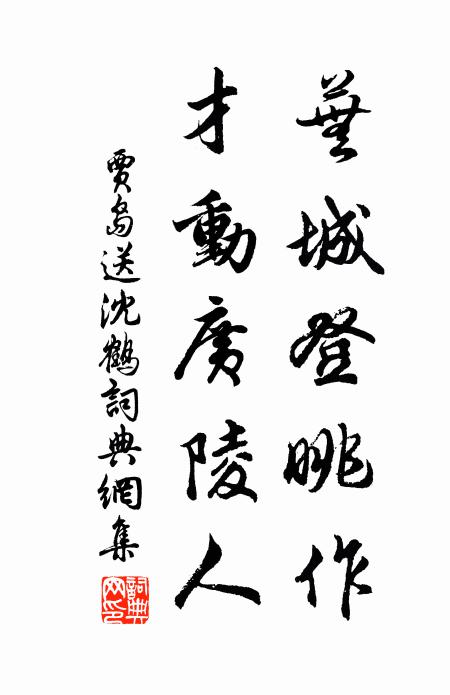 蕪城登眺作
才動廣陵人
賈島送沈鶴詞典網集
詞典网印